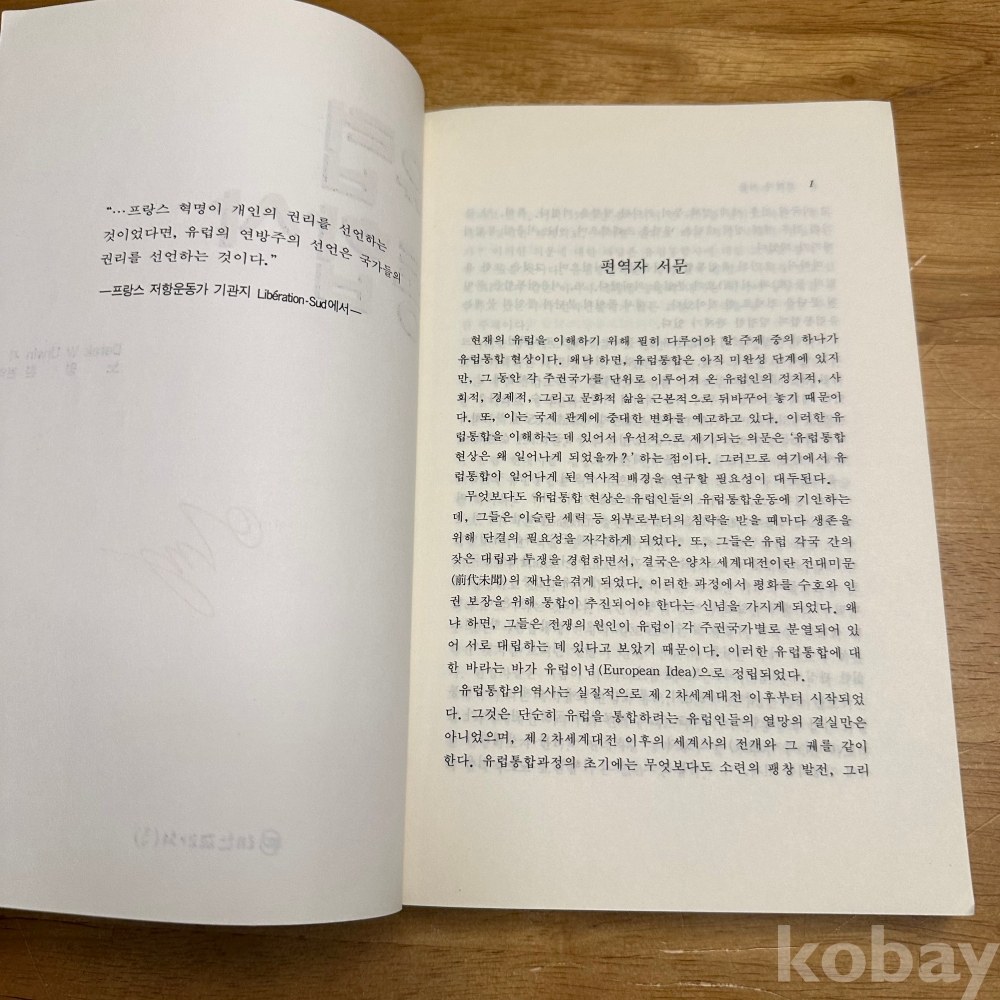 “…프랑스 혁명이 개인의 권리를 선언하는
것이었다면, 유럽의 연방주의 선언은 국가들의
권리를 선언하는 것이다.”
—프랑스 저항운동가 기관지 Libération-Sud에서—
1
편역자 서문
현재의 유럽을 이해하기 위해 필히 다루어야 할 주제 중의 하나가
유럽통합 현상이다. 왜냐 하면, 유럽통합은 아직 미완성 단계에 있지
만, 그 동안 각 주권국가를 단위로 이루어져 온 유럽인의 정치적, 사
회적, 경제적, 그리고 문화적 삶을 근본적으로 뒤바꾸어 놓기 때문이
다. 또, 이는 국제 관계에 중대한 변화를 예고하고 있다. 이러한 유
럽통합을 이해하는 데 있어서 우선적으로 제기되는 의문은 ‘유럽통합
현상은 왜 일어나게 되었을까?’ 하는 점이다. 그러므로 여기에서 유
럽통합이 일어나게 된 역사적 배경을 연구할 필요성이 대두된다.
무엇보다도 유럽통합 현상은 유럽인들의 유럽통합운동에 기인하는
데, 그들은 이슬람 세력 등 외부로부터의 침략을 받을 때마다 생존을
위해 단결의 필요성을 자각하게 되었다. 또, 그들은 유럽 각국 간의
잦은 대립과 투쟁을 경험하면서, 결국은 양차 세계대전이란 전대미문
(前代未聞)의 재난을 겪게 되었다. 이러한 과정에서 평화를 수호와 인
권 보장을 위해 통합이 추진되어야 한다는 신념을 가지게 되었다. 왜
냐 하면, 그들은 전쟁의 원인이 유럽이 각 주권국가별로 분열되어 있
어 서로 대립하는 데 있다고 보았기 때문이다. 이러한 유럽통합에 대
한 바라는 바가 유럽이념(European Idea)으로 정립되었다.
유럽통합의 역사는 실질적으로 제 2 차세계대전 이후부터 시작되었
다. 그것은 단순히 유럽을 통합하려는 유럽인들의 열망의 결실만은
아니었으며, 제 2 차세계대전 이후의 세계사의 전개와 그 궤를 같이
한다. 유럽통합과정의 초기에는 무엇보다도 소련의 팽창 발전, 그리
kobay